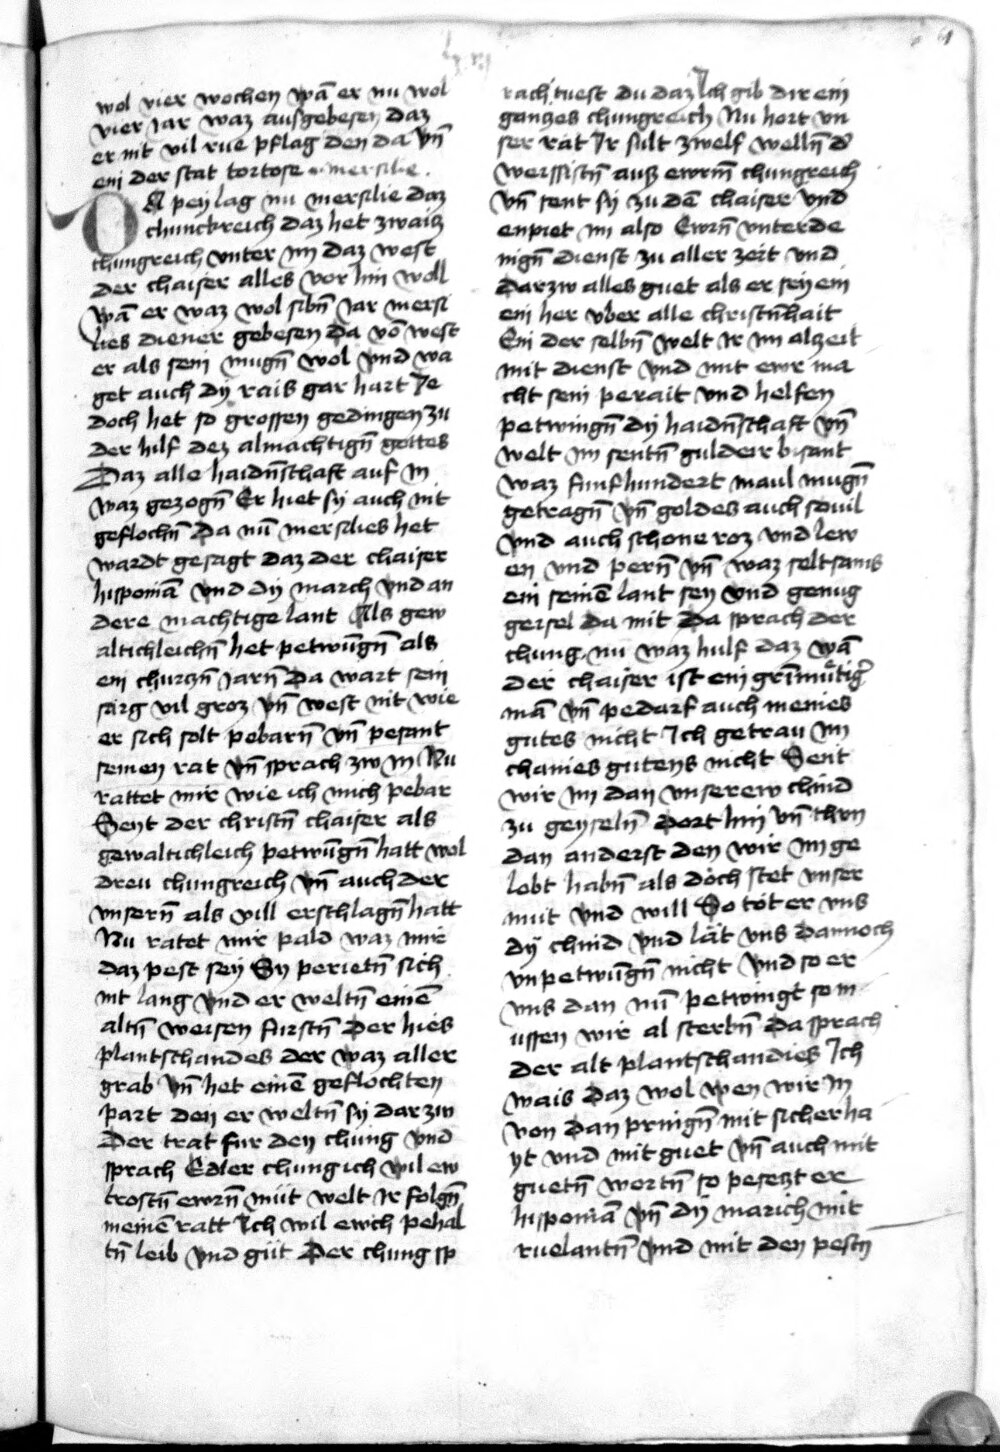 wol vier wochen wā er nu wol
vier iar waz ausgebesen daz
er nit vil rue pflag den da vn̄
ein der stat tortose mersilie.
Da peylag nu mersilie daz
chunckreich daz het zwaiz
chungreich vnter im daz west
der chaiser alles vor hin woll
wā er waz wol sibn̄ iar mersi
lies diener gebesen da vō west
er als sein mugn̄ wol vnd wa
get auch dÿ rais gar hart Je
doch het so grossen gedingen zu
der hilf dez almachtign̄ gottes
Daz alle haidn̄schaft auf in
waz gezogn̄ Er hiet sÿ auch nit
geflochn̄ Da nū mersilies het
wardt gesagt daz der chaiser
hisponiā vnd dÿ march vnd an
dere machtige lant Als gew
altichleichn̄ het petwūgn̄ als
ein churczn̄ iarn̄ Da wart sein
sarg vil groz vn̄ west nit wie
er sich solt pebarn̄ vn̄ pesant
seinen rat vn̄ sprach zw in Nu
rattet mir wie ich mich pebar
Seyt der christn̄ chaiser als
gewaltichleich petwūgn̄ hatt wol
dreu chungreich vn̄ auch der
vnsern̄ als vill erschlagn̄ hatt
Nu ratet mir pald waz mir
daz pest seÿ Sy perietn̄ sich
nit lang vnd er weltn̄ einē
altn̄ weisen furstn̄ der hies
plantschandes der waz aller
grab vn̄ het einē geflochten
part den er weltn̄ sÿ dar zw
Der trat fur den chung vnd
sprach Edler chung ich wil ew
trostn̄ ewrn̄ müt welt ir folgn̄
meinē ratt Ich wil ewch pehal
tn̄ leib vnd güt Der chung sp
rach tuest du daz Ich gib dir ein
ganczes chungreich Nu hort vn
ser rat Ir sult zwelf welln̄ d
werssistn̄ ausz ewrm̄ chungreich
vn̄ sent sÿ zu dē chaiser vnd
enpiet im also Ewrn̄ vnterde
nign̄ dienst zu aller zeit vnd
darzw alles guet als er seÿ ein
ein her vber alle christn̄hait
Ein der selbn̄ welt ir im alzeit
mit dienst vnd mit ewr ma
cht sein perait vnd helfen
petwingn̄ dÿ haidn̄schaft vn̄
welt im sentn̄ guldeir bisant
waz funfhundert maul mugn̄
getragn̄ vn̄ goldes auch souil
vnd auch schone roz vnd lew
en vnd pern̄ vn̄ waz seltsams
ein seinē lant seÿ vnd genug
geisel da mit Da sprach der
chung nu waz hulf daz wā
der chaiser ist ein grimmütig
mā vn̄ pedarf auch meines
gutes nicht Ich getrau im
chaines gutens nicht Sent
wir im dan vnserew chind
zu geyseln̄ dort hin vn̄ thun
dan anderst den wir im ge
lobt habn̄ als doch stet vnser
muit vnd will So tot er vns
dÿ chind vnd lät vns dannoch
vnpetwūgn̄ nicht vnd so er
vns dan nū petwingt so m
ussen wir al sterbn̄ Da sprach
der alt plantschandies Ich
wais daz wol wen wir in
von dan pringn̄ mit sicherha
yt vnd mit guet vn̄ auch mit
guetn̄ wortn̄ so peseczt er
hisponiā vn̄ dÿ march mit
ruelantn̄ vnd mit den pestn